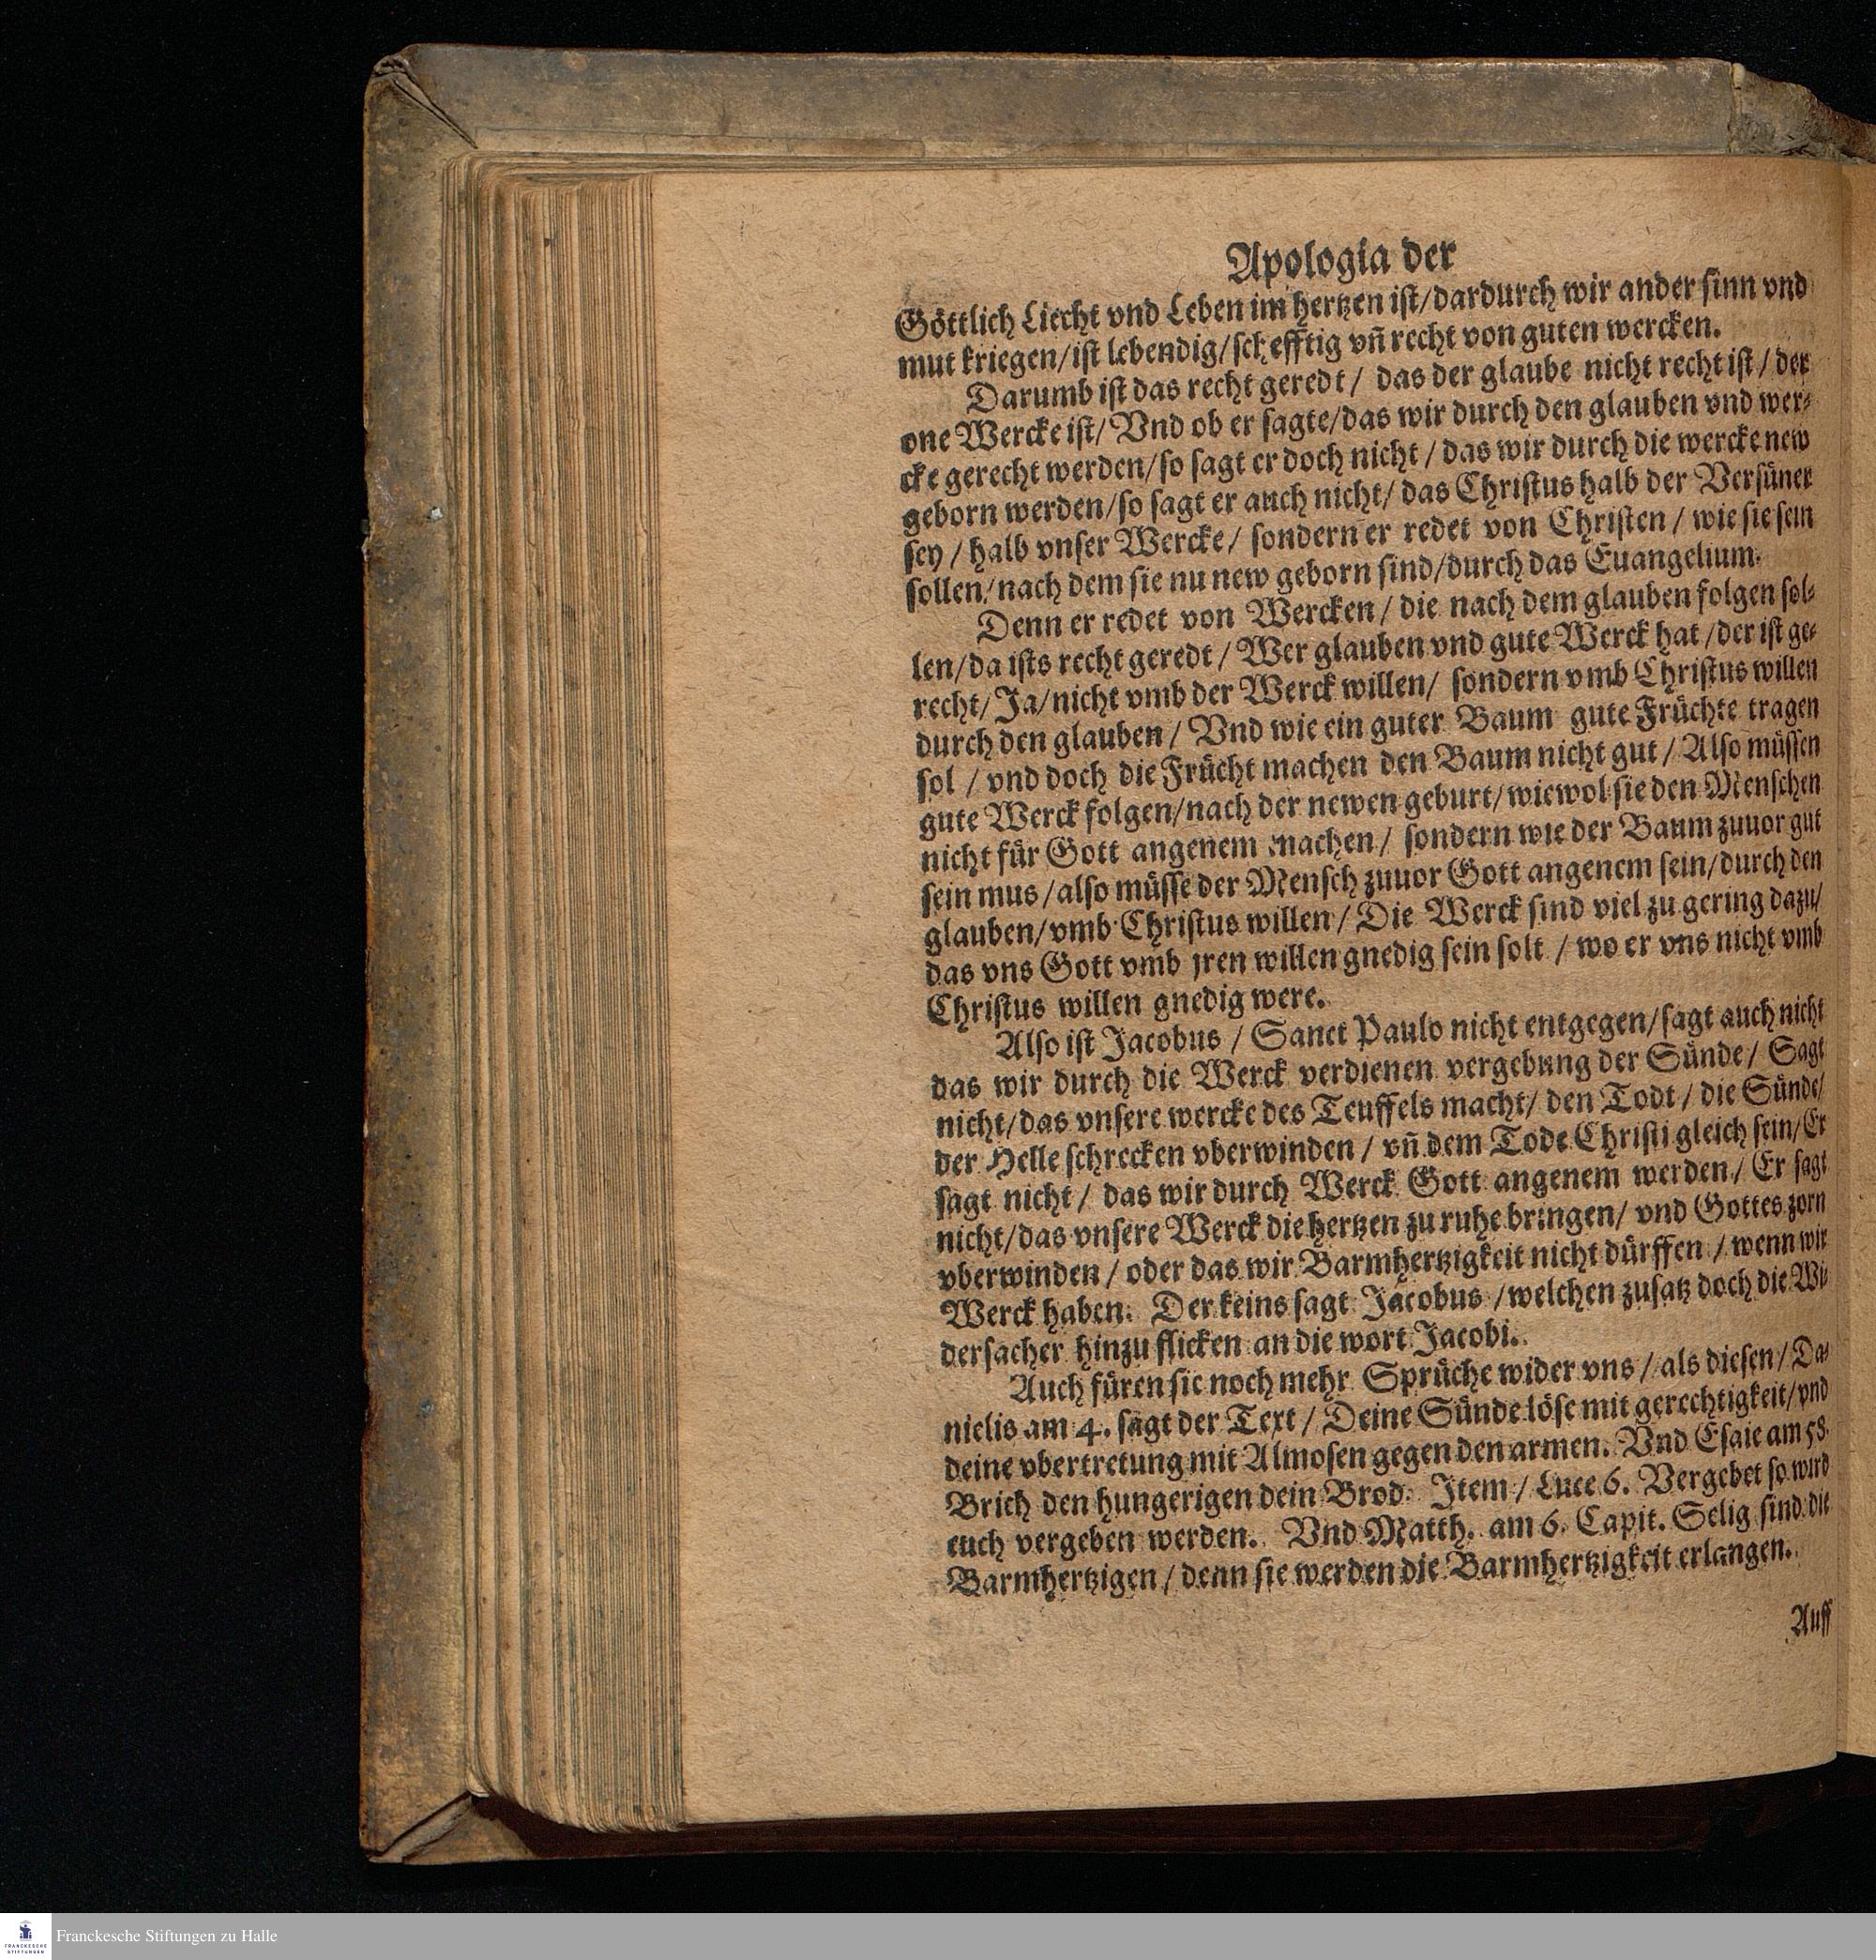 Apologia der
Göttlich Liecht vnd Leben im hertzen ist/dardurch wir ander sinn vnd
mut kriegen/ist lebendig/schefftig vñ recht von guten wercken.
Darumb ist das recht geredt/ das der glaube nicht recht ist/ der
one Wercke ist/ Vnd ob er sagte/das wir durch den glauben vnd wer-
cke gerecht werden/so sagt er doch nicht/ das wir durch die wercke new
geborn werden/so sagt er auch nicht/ das Christus halb der Versüner
sey/ halb vnser Wercke/ sondern er redet von Christen/ wie sie sein
sollen/nach dem sie nu new geborn sind/durch das Euangelium.
Denn er redet von Wercken/ die nach dem glauben folgen sol-
len/da ists recht geredt/ Wer glauben vnd gute Werck hat/der ist ge-
recht/ Ja/nicht vmb der Werck willen/ sondern vmb Christus willen
durch den glauben/ Vnd wie ein guter Baum gute Früchte tragen
sol/ vnd doch die Frücht machen den Baum nicht gut/ Also müssen
gute Werck folgen/nach der newen geburt/wiewol sie den Menschen
nicht für Gott angenem machen/ sondern wie der Baum zuuor gut
sein mus/also müsse der Mensch zuuor Gott angenem sein/durch den
glauben/vmb Christus willen/ Die Werck sind viel zu gering dazu/
das vns Gott vmb jren willen gnedig sein solt/ wo er vns nicht vmb
Christus willen gnedig were.
Also ist Jacobus/ Sanct Paulo nicht entgegen/sagt auch nicht
das wir durch die Werck verdienen vergebung der Sünde/ Sagt
nicht/das vnsere wercke des Teuffels macht/ den Todt/ die Sünde/
der Helle schrecken vberwinden/ vñ dem Tode Christi gleich sein/Er
sagt nicht/ das wir durch Werck Gott angenem werden/ Er sagt
nicht/das vnsere Werck die hertzen zu ruhe bringen/ vnd Gottes zorn
vberwinden/ oder das wir Barmhertzigkeit nicht dürffen/ wenn wir
Werck haben. Der keins sagt Jacobus/welchen zusatz doch die Wi-
dersacher hinzu flicken an die wort Jacobi.
Auch füren sie noch mehr Sprüche wider vns/ als diesen/ Da-
nielis am 4. sagt der Text/ Deine Sünde löse mit gerechtigkeit/vnd
deine vbertretung mit Almosen gegen den armen. Vnd Esaie am 58.
Brich den hungerigen dein Brod. Item/ Luce 6. Vergebet so wird
euch vergeben werden. Vnd Matth. am 6. Capit. Selig sind die
Barmhertzigen/ denn sie werden die Barmhertzigkeit erlangen.
Auff
FRANCKESCHE
STIFTUNGEN
Franckesche Stiftungen zu Halle